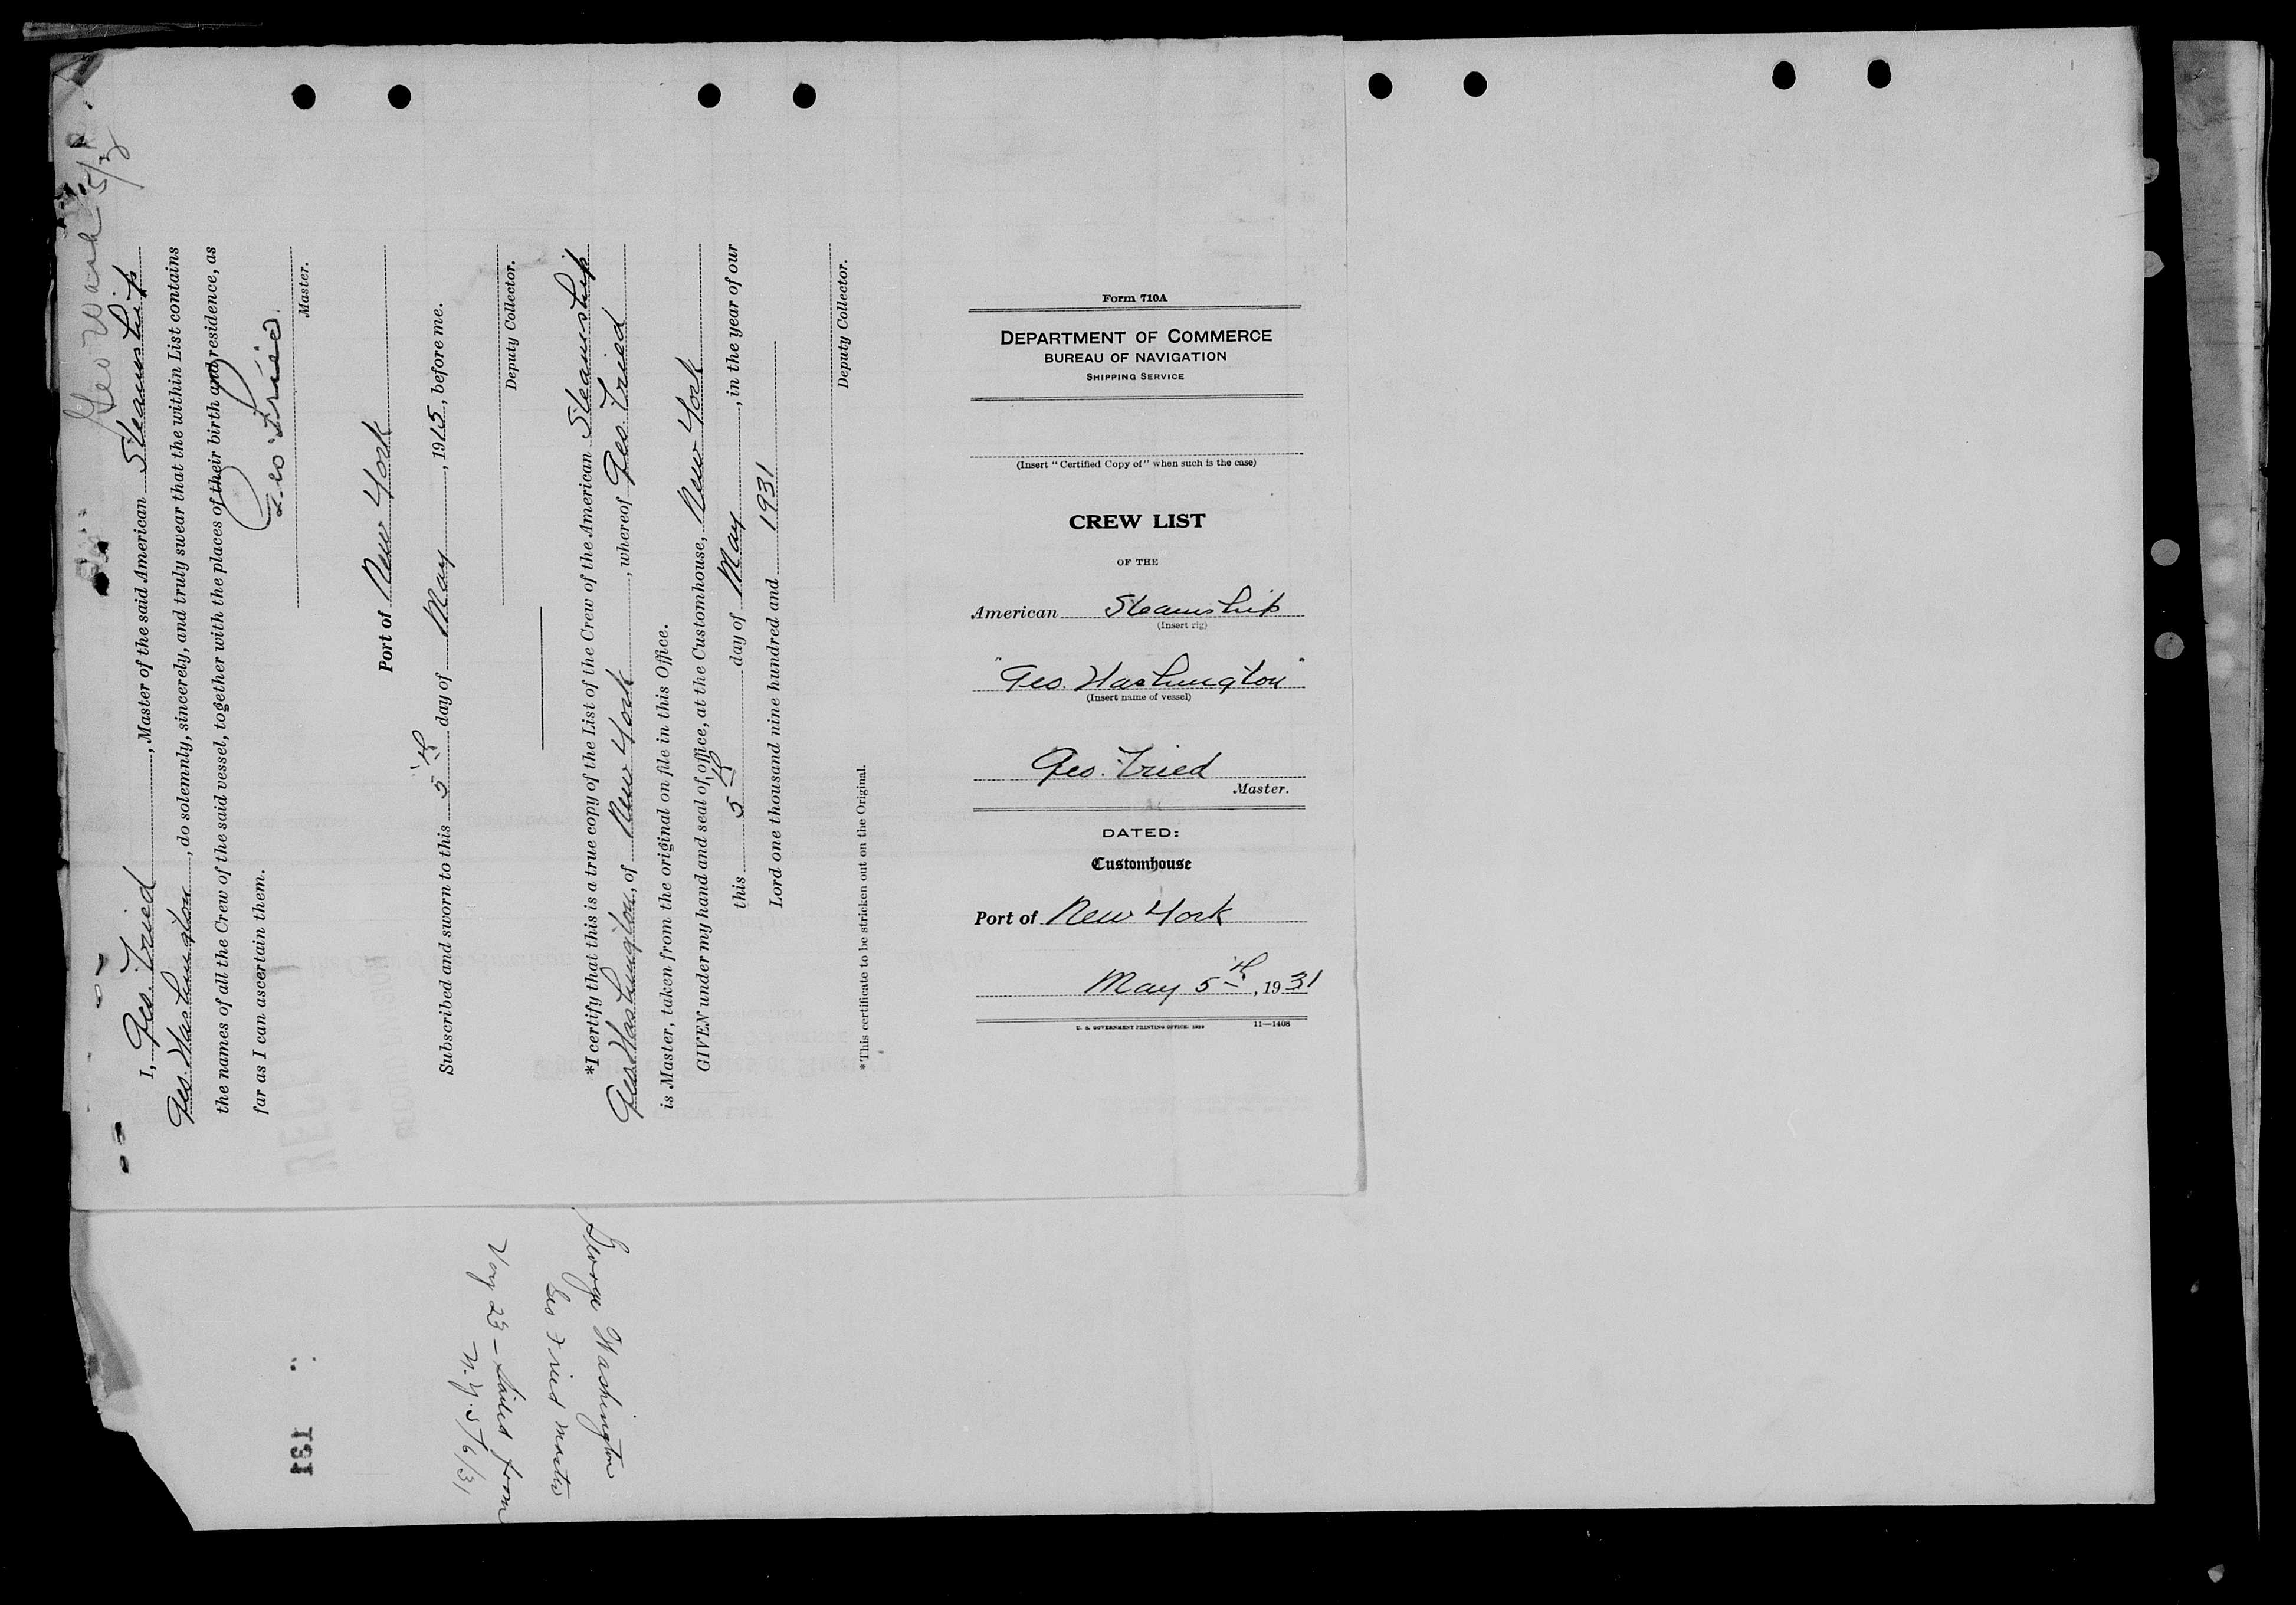 I, Geo. Fried, Master of the said American Steamship
Geo. Washington, do solemnly, sincerely, and truly swear that the within List contains
the names of all the Crew of the said vessel, together with the places of their birth and residence, as
far as I can ascertain them.
Geo Fried
Master.
Port of New York
Subscribed and sworn to this 5th day of May, 1915, before me.
Deputy Collector.
*I certify that this is a true copy of the List of the Crew of the American Steamship
Geo. Washington, of New York, whereof Geo. Fried
is Master, taken from the original on file in this Office.
GIVEN under my hand and seal of office, at the Customhouse, New York
this 5th day of May, in the year of our
Lord one thousand nine hundred and 1931
Deputy Collector.
*This certificate to be stricken out on the Original.
Form 710A
DEPARTMENT OF COMMERCE
BUREAU OF NAVIGATION
SHIPPING SERVICE
(Insert "Certified Copy of" when such is the case)
CREW LIST
OF THE
American Steamship
(Insert rig)
"Geo. Washington"
(Insert name of vessel)
Geo. Fried
Master.
DATED:
Customhouse
Port of New York
May 5th, 1931
U. S. GOVERNMENT PRINTING OFFICE: 1929 11—1408
George Washington
Geo Fried master
Voy 23 - Sailed from
N.Y. 5/6/31
131